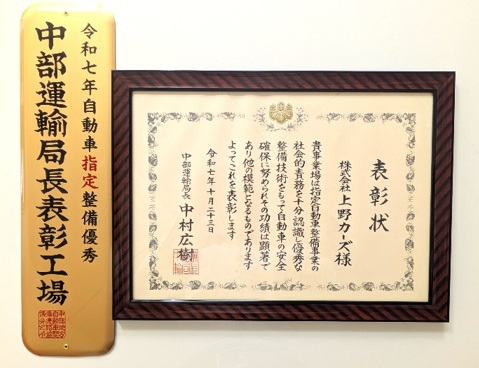 令和七年自動車指定整備優秀
中部運輸局長表彰工場
表彰状
株式会社上野カーズ様
貴事業場は指定自動車整備事業の
社会的責務を十分認識し優秀な
整備技術をもって自動車の安全
確保に努められその功績は顕著で
あり他の模範となるものであります
よってこれを表彰します
令和七年十月二十三日
中部運輸局長 中村広樹